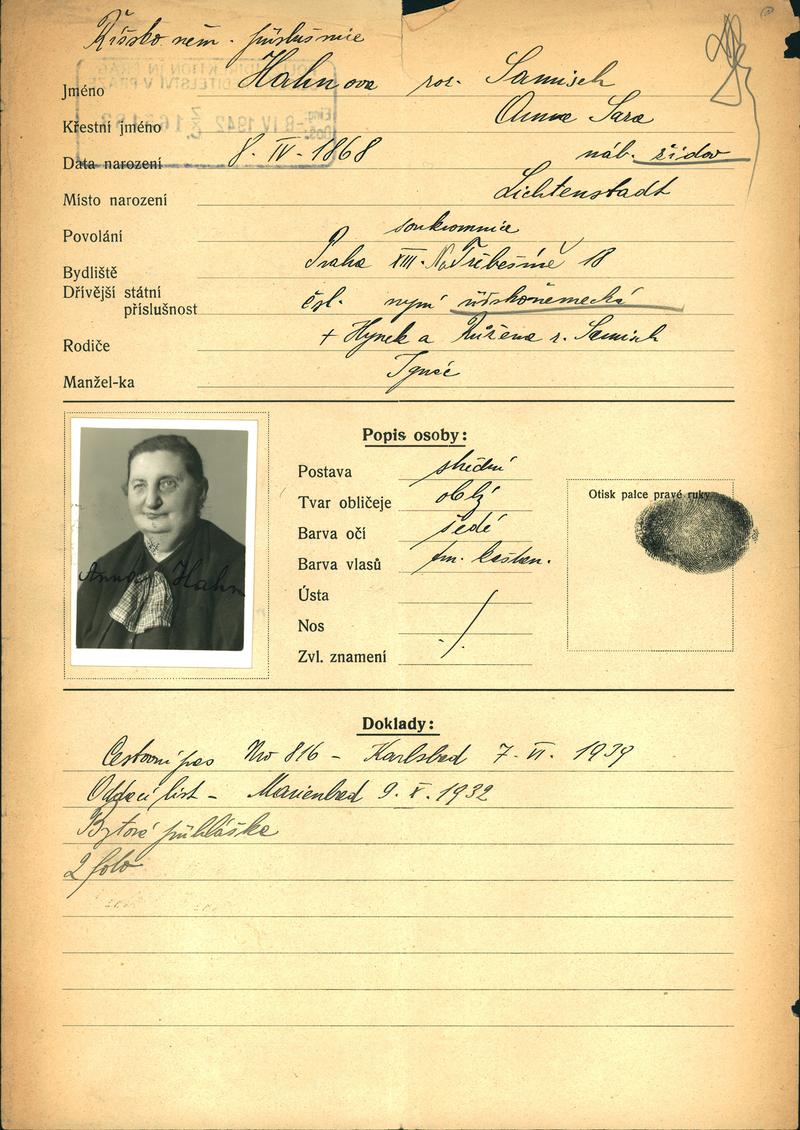 Říšsko něm. příslušnice
Jméno Hahnova roz. Samisch
Křestní jméno Anna Sara
Data narození 8. IV. 1868 náb. židov
Místo narození Lichtenstadt
Povolání soukromnice
Bydliště Praha XIII. Na Třebešíně 18
Dřívější státní
příslušnost čsl. nyní říškoněmecká
Rodiče + Hynek a Růžena r. Samisch
Manžel-ka Ignác
Popis osoby:
Postava střední
Tvar obličeje oblý
Barva očí šedé
Barva vlasů tm. kaštan.
Ústa
Nos
Zvl. znamení
Otisk palce pravé ruky
Anna Hahn
Doklady:
Cestovní pas Nro 816 – Karlsbad 7. VI. 1939
Oddací list – Marienbad 9. X. 1932
Bytová přihláška
2 foto